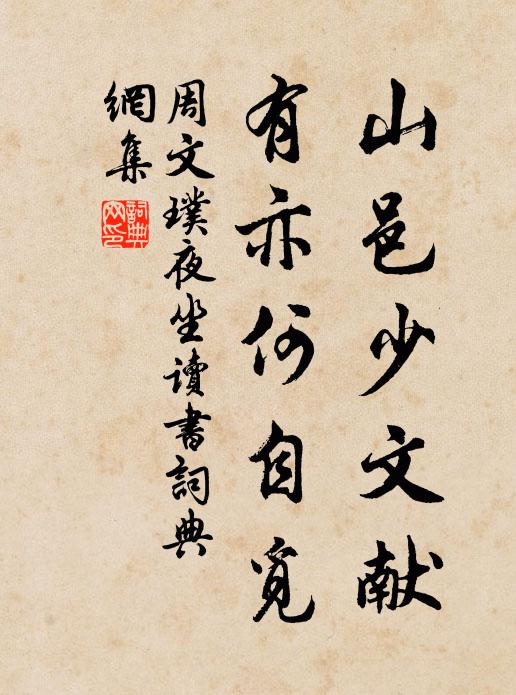 山邑少文献
有亦何自觅
周文璞夜坐讀書詞典
網集
詞典
网印